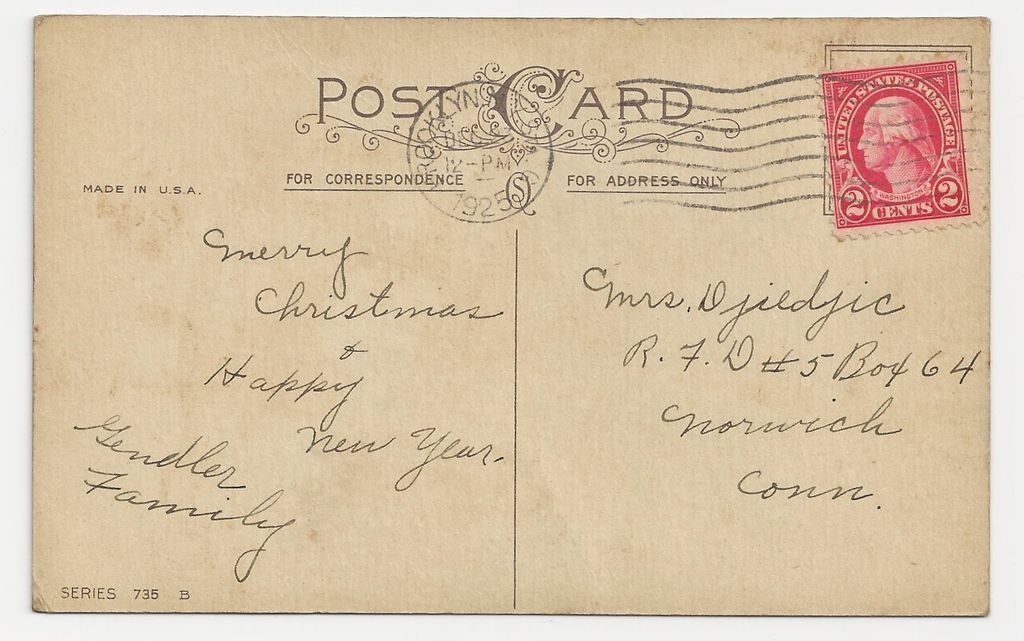 POST CARD
BROOKLYN
DEC
12-PM
1925
UNITED STATES POSTAGE
WASHINGTON
2 CENTS 2
MADE IN U.S.A.
FOR CORRESPONDENCE
FOR ADDRESS ONLY
Merry
Christmas
&
Happy
New Year.
Gendler
Family
Mrs. Djiedjic
R. F. D #5 Box 64
Norwich
Conn.
SERIES 735 B